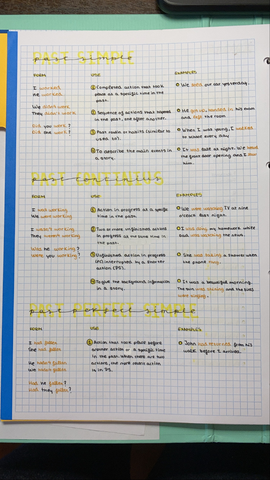 PAST SIMPLE
past simple
FORM USE EXAMPLES
I worked
He worked
We didn't work
They didn't work
Did you work?
Did she work?
① Completed action that took
place at a specific time in the
past.
② Sequence of actions that happened
in the past, one after another.
③ Past habit or habits (similar to
used to).
④ To describe the main events in
a story.
We sold our car yesterday.
He got up, handed his
and left the room
When I was young, I walked
to school every day
It was late at night. We heard
the front door opening and I saw
him.
PAST CONTINUOUS
past continuous
FORM USE EXAMPLES
I was working
We were working
I wasn't working
They weren't working
Was he working?
Were you working?
① Action in progress at a specific
time in the past.
② Two or more unfinished actions
in progress at the same time in
the past.
③ Unfinished action in progress
(PC) interrupted by a shorter
action (PS).
④ To give the background information
in a story.
We were watching TV at nine
o'clock last night.
I was doing my homework while
was the
She was taking a shower when
the phone rang.
It was a beautiful morning.
The sun was shining and the birds
were singing.
PAST PERFECT SIMPLE
past perfect simple
FORM USE EXAMPLES
I had fallen
She had fallen
He hadn't fallen
We hadn't fallen
Had he fallen?
Had they fallen?
① Action that took place before
another action or a specific time
in the past. When there are two
actions, the more recent action
is in PS.
John had returned from his
walk before I arrived.